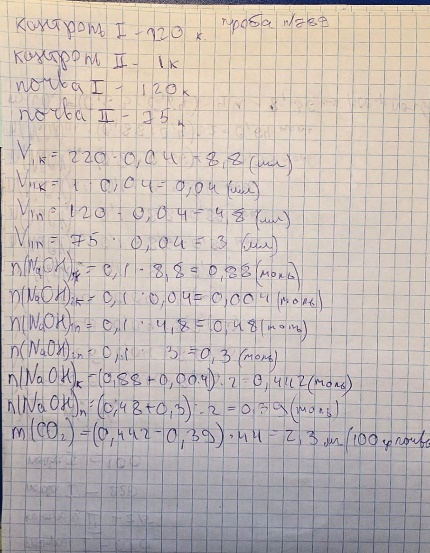 контроль I - 220 к. проба п/239
контроль II - 1к
почва I - 120к
почва II - 75к
V₁к = 220 · 0,04 = 8,8 (мл)
V₁₁к = 1 · 0,04 = 0,04 (мл)
V₁п = 120 · 0,04 = 4,8 (мл)
V₁₁п = 75 · 0,04 = 3 (мл)
n(NaOH)₁к = 0,1 · 8,8 = 0,88 (моль)
n(NaOH)₂к = 0,1 · 0,04 = 0,004 (моль)
n(NaOH)₁п = 0,1 · 4,8 = 0,48 (моль)
n(NaOH)₂п = 0,1 · 3 = 0,3 (моль)
n(NaOH)к = (0,88 + 0,004) : 2 = 0,442 (моль)
n(NaOH)п = (0,48 + 0,3) : 2 = 0,39 (моль)
m(CO₂) = (0,442 - 0,39) · 44 = 2,3 мг (100 гр почвы